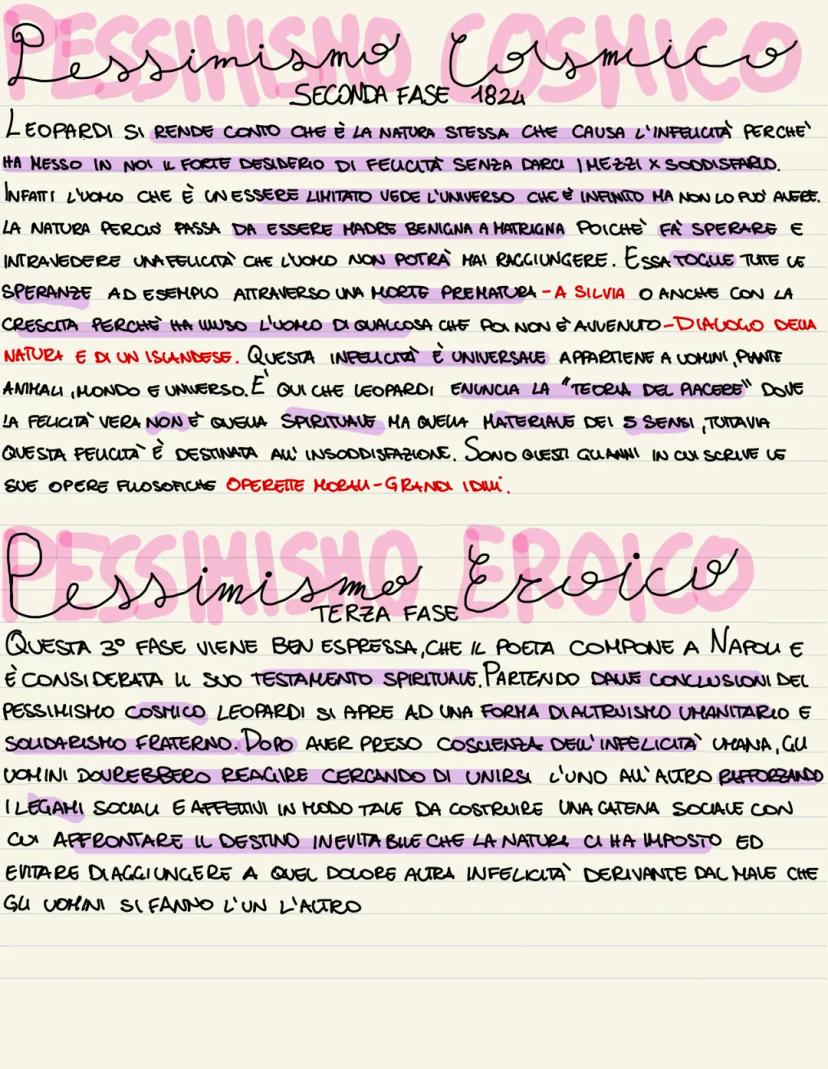 Pessimismo Cosmico
SECONDA FASE 1824
LEOPARDI SI RENDE CONTO CHE È LA NATURA STESSA CHE CAUSA L'INFELICITÀ PERCHE'
HA MESSO IN NOI IL FORTE DESIDERIO DI FELICITÀ SENZA DARCI I MEZZI X SODDISFARLO.
INFATTI L'UOMO CHE È UN ESSERE LIMITATO VEDE L'UNIVERSO CHE È INFINITO MA NON LO PUO' AVERE.
LA NATURA PERCIO' PASSA DA ESSERE MADRE BENIGNA A MATRIGNA POICHE' FA' SPERARE E
INTRAVEDERE UNA FELICITA' CHE L'UOMO NON POTRÀ MAI RAGGIUNGERE. ESSA TOGLIE TUTE LE
SPERANZE AD ESEMPIO ATTRAVERSO UNA MORTE PREMATURA - A SILVIA O ANCHE CON LA
CRESCITA PERCHE' HA ILLUSO L'UOMO DI QUALCOSA CHE POI NON È AVVENUTO - DIALOGO DELLA
NATURA E DI UN ISLANDESE. QUESTA INFELICITÀ È UNIVERSALE APPARTIENE A UOMINI, PIANTE
ANIMALI, MONDO E UNIVERSO. E' QUI CHE LEOPARDI ENUNCIA LA "TEORIA DEL PIACERE" DOVE
LA FELICITA' VERA NON È QUELLA SPIRITUALE MA QUELLA MATERIALE DEI 5 SENSI, TUTTAVIA
QUESTA FELICITA' È DESTINATA ALL' INSODDISFAZIONE. SONO QUESTI GLI ANNI IN CUI SCRIVE LE
SUE OPERE FILOSOFICHE OPERETTE MORALI - GRANDI IDILLI.
Pessimismo Eroico
TERZA FASE
QUESTA 3° FASE VIENE BEN ESPRESSA, CHE IL POETA COMPONE A NAPOLI E
È CONSIDERATA IL SUO TESTAMENTO SPIRITUALE. PARTENDO DALLE CONCLUSIONI DEL
PESSIMISMO COSMICO LEOPARDI SI APRE AD UNA FORMA DI ALTRUISMO UMANITARIO E
SOLIDARISMO FRATERNO. DOPO AVER PRESO COSCIENZA DELL'INFELICITÀ UMANA, GLI
UOMINI DOVREBBERO REAGIRE CERCANDO DI UNIRSI L'UNO ALL'ALTRO RAFFORZANDO
I LEGAMI SOCIALI E AFFETTIVI IN MODO TALE DA COSTRUIRE UNA CATENA SOCIALE CON
CUI AFFRONTARE IL DESTINO INEVITABILE CHE LA NATURA CI HA IMPOSTO ED
EVITARE DI AGGIUNGERE A QUEL DOLORE ALTRA INFELICITA' DERIVANTE DAL MALE CHE
GLI UOMINI SI FANNO L'UN L'ALTRO